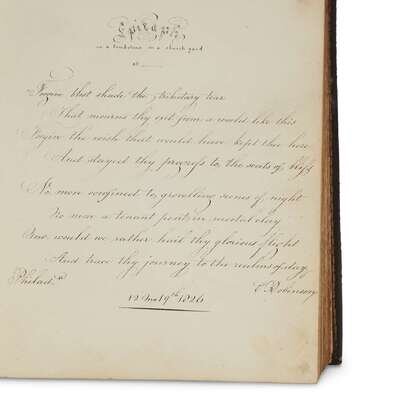 Epitaph
on a tombstone in a church yard
at ——
Forgive blest shade the tributary tear
That mourns thy exit from a world like this
Forgive the wish that would have kept thee here
And stayed thy progress to the seats of bliss
No more confined to grovelling scenes of night
No more a tenant pent in mortal clay
Now would we rather hail thy glorious flight
And trace thy journey to the realms of day
Philad.ª
C. Robinson
12 mo 19th 1826